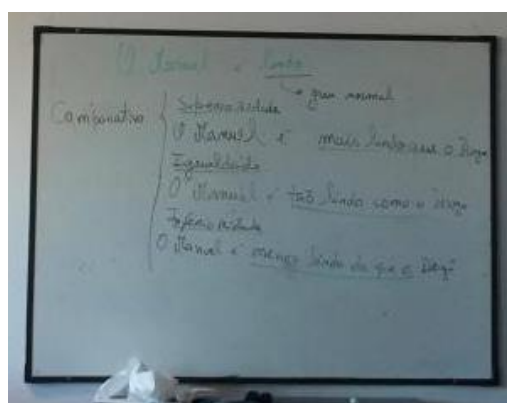 O Manuel é lindo
grau normal
Comparativo
Superioridade
O Manuel é mais lindo que o Diogo
Igualdade
O Manuel é tão lindo como o Diogo
Inferioridade
O Manuel é menos lindo do que o Diogo